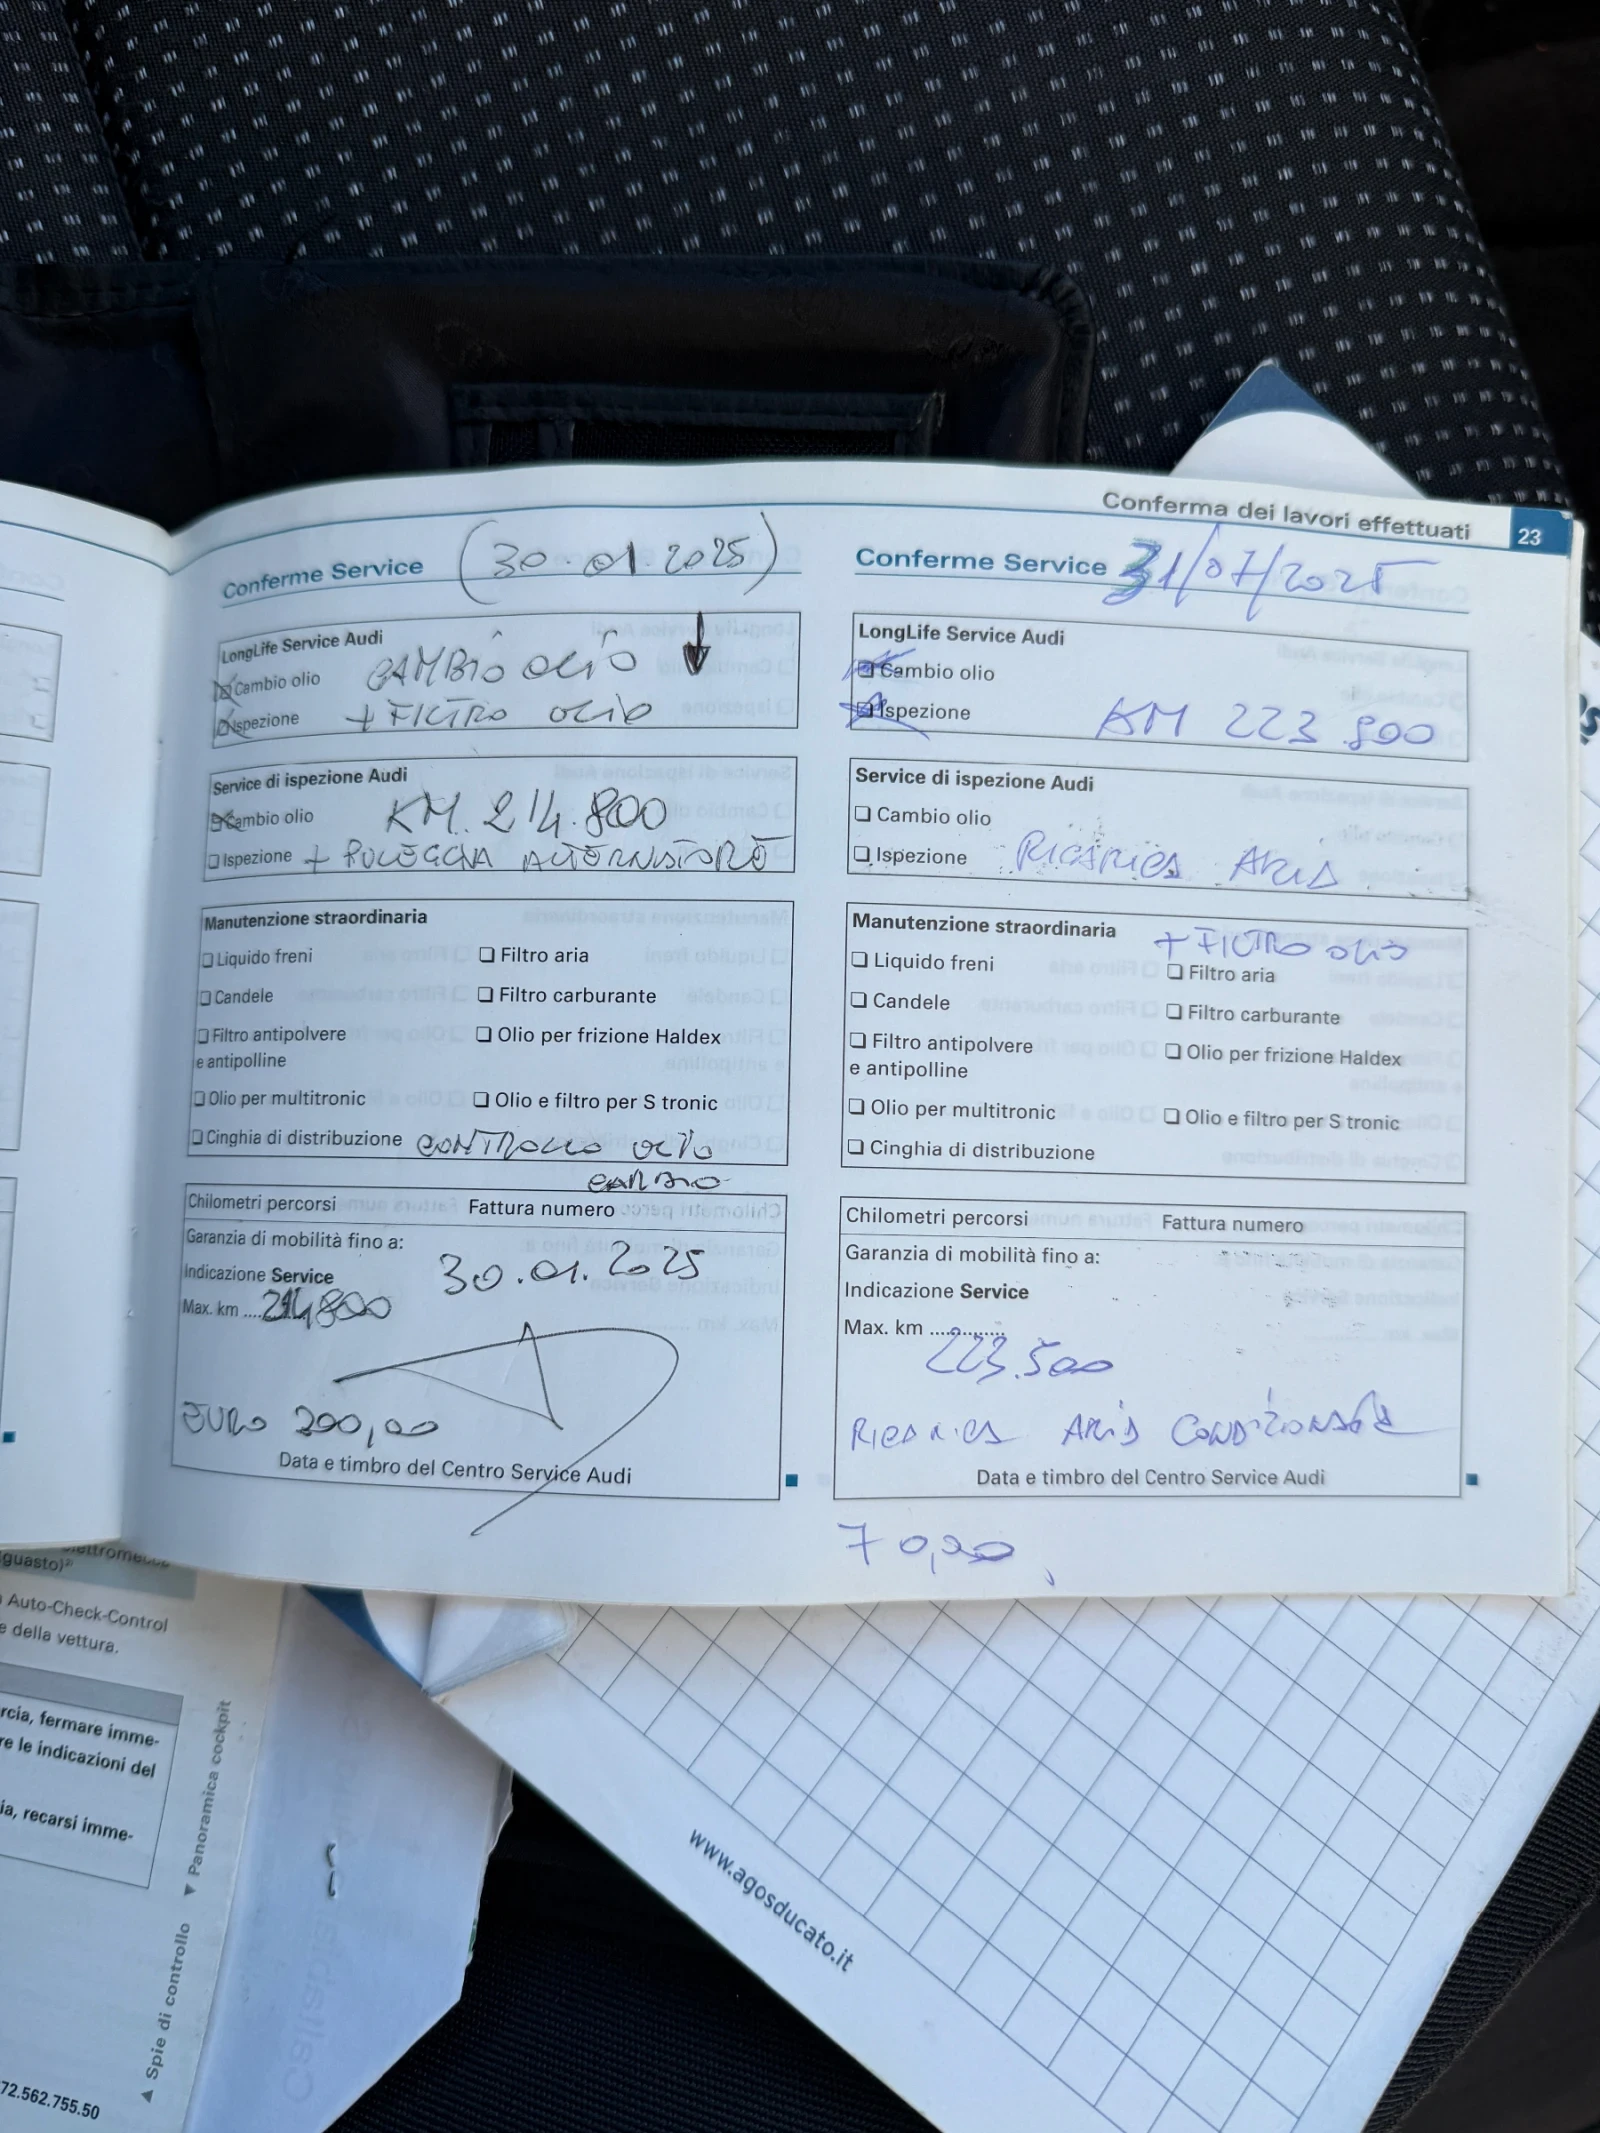 Conferma dei lavori effettuati 23
Conferme Service (30.01.2025)
LongLife Service Audi
Cambio olio CAMBIO OLIO
Ispezione + FILTRO OLIO
Service di ispezione Audi
Cambio olio KM. 214.800
Ispezione + PULEGGIA ALTERNATORE
Manutenzione straordinaria
Liquido freni Filtro aria
Candele Filtro carburante
Filtro antipolvere Olio per frizione Haldex
e antipolline
Olio per multitronic Olio e filtro per S tronic
Cinghia di distribuzione CONTROLLO OLIO
CAMBIO
Chilometri percorsi Fattura numero
Garanzia di mobilità fino a:
30.01.2025
Indicazione Service
Max. km .... 214,800
EURO 200,00
Data e timbro del Centro Service Audi
Conferme Service 31/07/2025
LongLife Service Audi
Cambio olio
Ispezione KM 223.800
Service di ispezione Audi
Cambio olio
Ispezione RICARICA ARIA
Manutenzione straordinaria + FILTRO OLIO
Liquido freni Filtro aria
Candele Filtro carburante
Filtro antipolvere Olio per frizione Haldex
e antipolline
Olio per multitronic Olio e filtro per S tronic
Cinghia di distribuzione
Chilometri percorsi Fattura numero
Garanzia di mobilità fino a:
Indicazione Service
Max. km ..............
223.500
RICARICA ARIA CONDIZIONATA
Data e timbro del Centro Service Audi
70,00
guasto)²⁾
Auto-Check-Control
e della vettura.
rcia, fermare imme-
re le indicazioni del
ia, recarsi imme-
▲ Spie di controllo ▼ Panoramica cockpit
72.562.755.50
www.agosducato.it